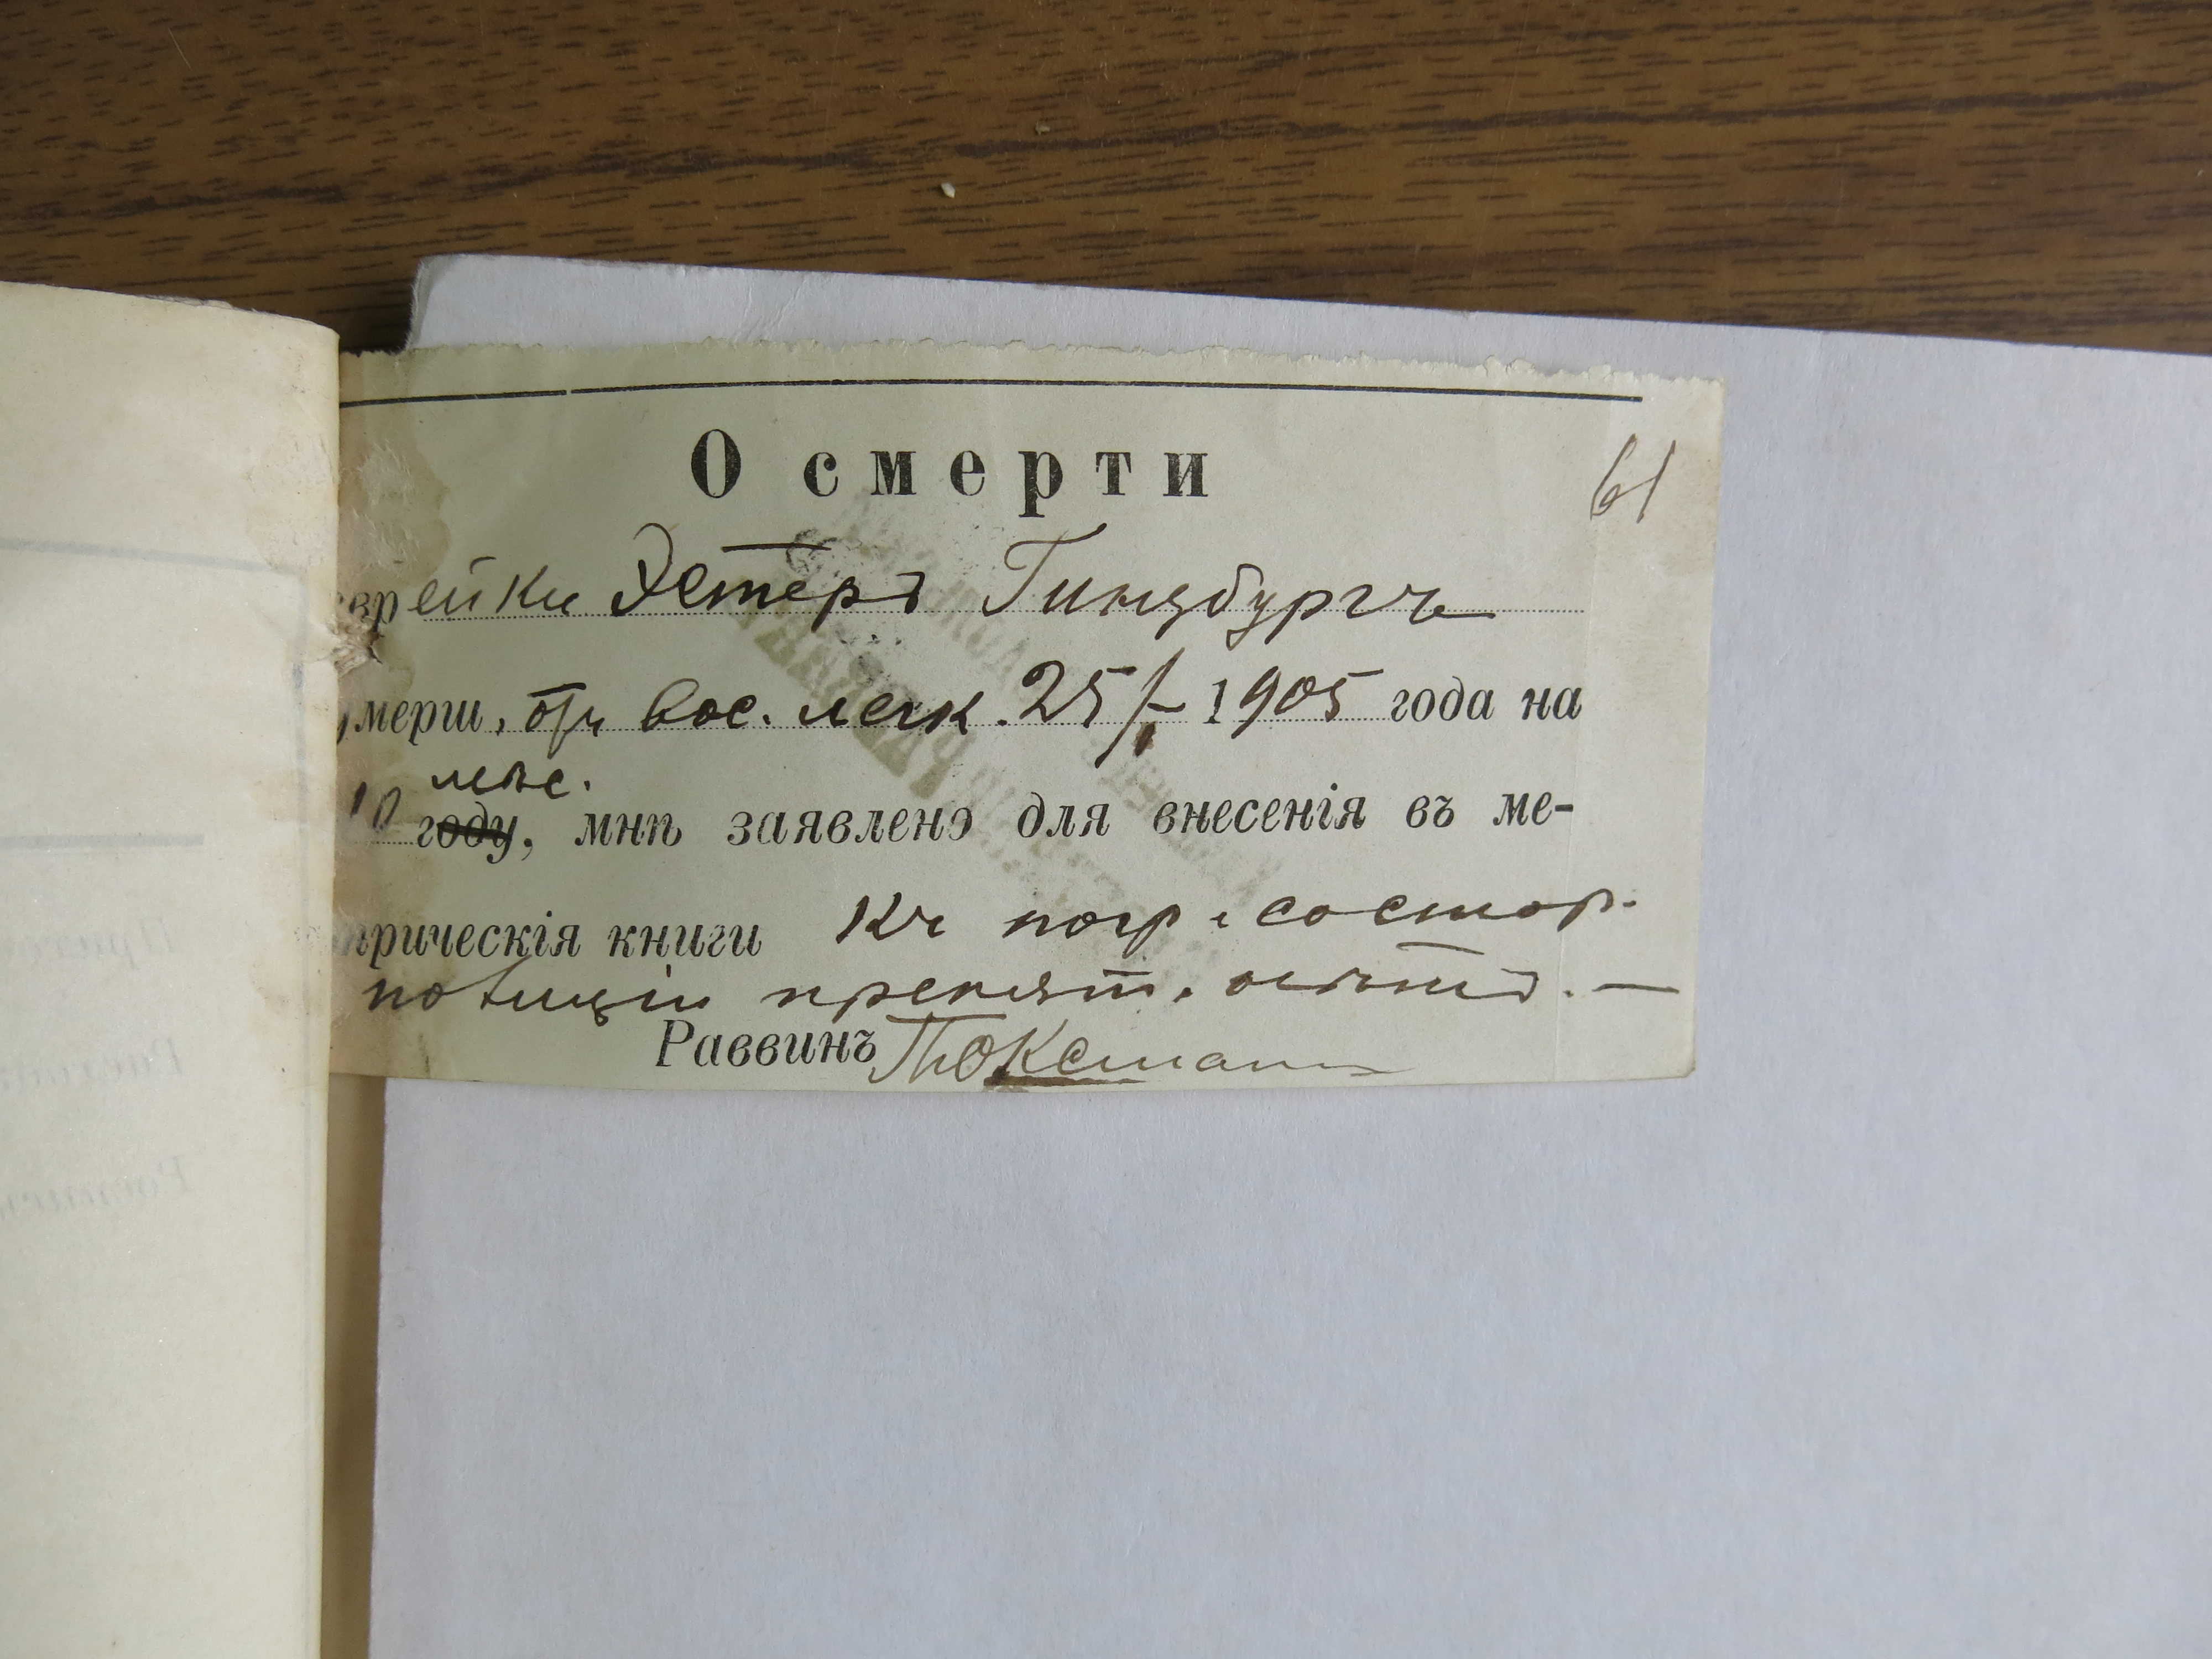 О смерти
61
еврейки Эстеръ Гинцбургъ
умерш. отъ вос. легк. 25/ 1905 года на
10 мѣс.
году, мнѣ заявлено для внесенія въ ме-
трическія книги Къ погр. со стор.
полиціи препят. нѣтъ. —
Раввинъ